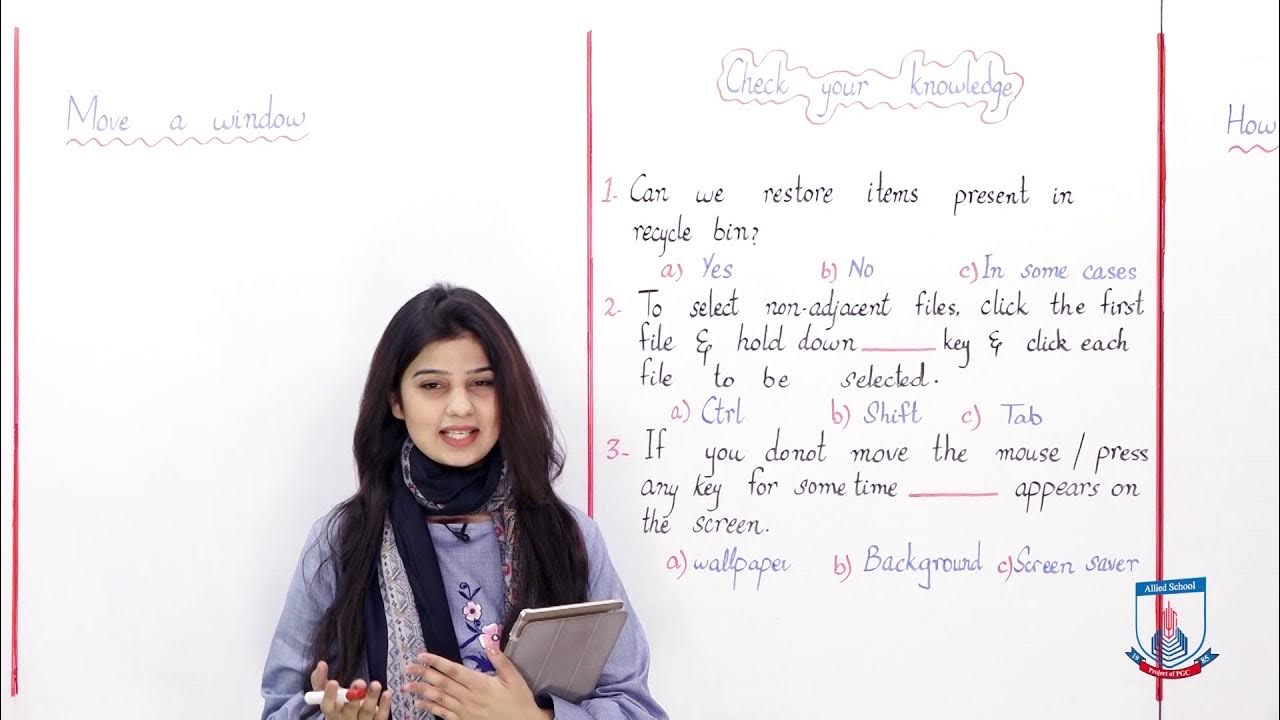 Move a window
Check your knowledge
1- Can we restore items present in
recycle bin?
a) Yes b) No c) In some cases
2- To select non-adjacent files, click the first
file & hold down ______ key & click each
file to be selected.
a) Ctrl b) Shift c) Tab
3- If you donot move the mouse / press
any key for some time ______ appears on
the screen.
a) wallpaper b) Background c) Screen saver
How
Allied School
19 85
Project of PGC